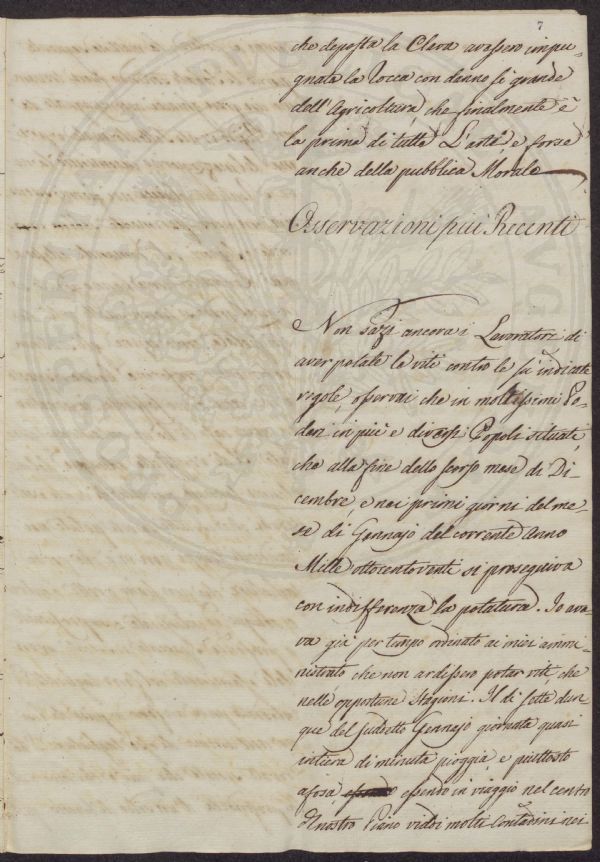 7
che deposta la Clava avessero impu-
gnata la Rocca con danno sì grande
dell'Agricoltura, che finalmente è
la prima di tutte L'arti, e forse
anche della pubblica Morale
Osservazioni più Recenti
Non sazj ancora i Lavoratori di
aver potate le viti contro le sù indicate
regole, osservai che in moltissimi Po-
deri in più e diversi Popoli situati,
che alla fine dello scorso mese di Di-
cembre, e nei primi giorni del me-
se di Gennajo del corrente Anno
Mille ottocentoventi si proseguiva
con indifferenza la potatura. Io ave-
va già per tempo ordinato ai miei ammi-
nistrati che non ardissero potar viti, che
nelle opportune Stagioni. Il dì sette dun
que del suddetto Gennajo giornata quasi
intiera di minuta pioggia, e piuttosto
afosa, essendo in viaggio nel centro
d'nostro Piano viddi molti Contadini nei